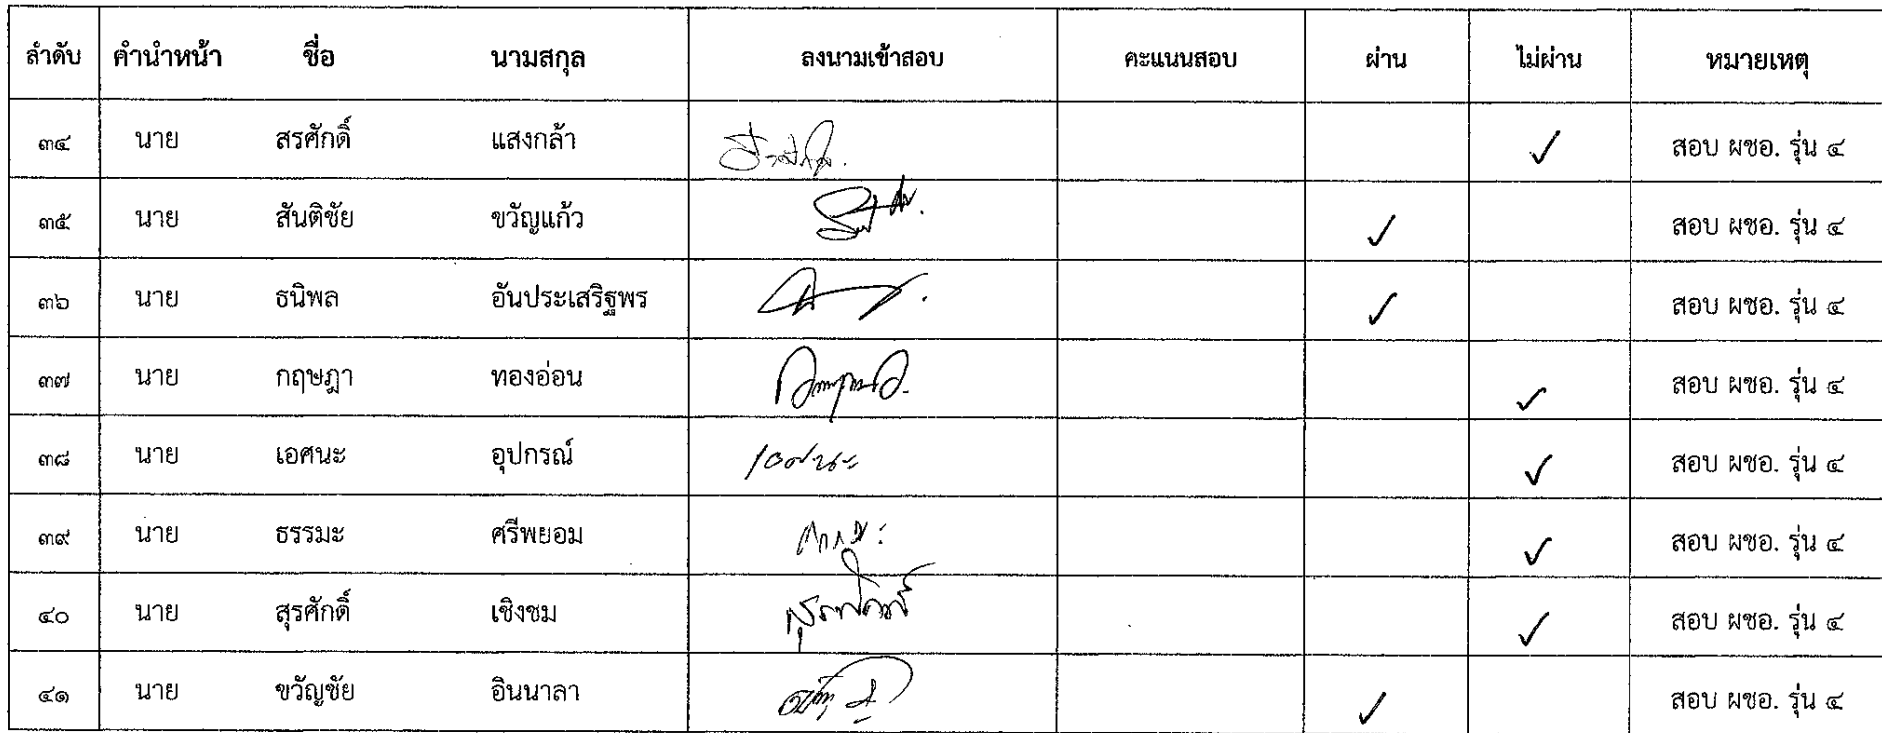 ลำดับ คำนำหน้า ชื่อ นามสกุล ลงนามเข้าสอบ คะแนนสอบ ผ่าน ไม่ผ่าน หมายเหตุ
๓๔ นาย สรศักดิ์ แสงกล้า ✓ สอบ ผชอ. รุ่น ๔
๓๕ นาย สันติชัย ขวัญแก้ว ✓ สอบ ผชอ. รุ่น ๔
๓๖ นาย ธนิพล อันประเสริฐพร ✓ สอบ ผชอ. รุ่น ๔
๓๗ นาย กฤษฎา ทองอ่อน ✓ สอบ ผชอ. รุ่น ๔
๓๘ นาย เอศนะ อุปกรณ์ เอศนะ ✓ สอบ ผชอ. รุ่น ๔
๓๙ นาย ธรรมะ ศรีพยอม ✓ สอบ ผชอ. รุ่น ๔
๔๐ นาย สุรศักดิ์ เชิงชม สุรศักดิ์ ✓ สอบ ผชอ. รุ่น ๔
๔๑ นาย ขวัญชัย อินนาลา ✓ สอบ ผชอ. รุ่น ๔